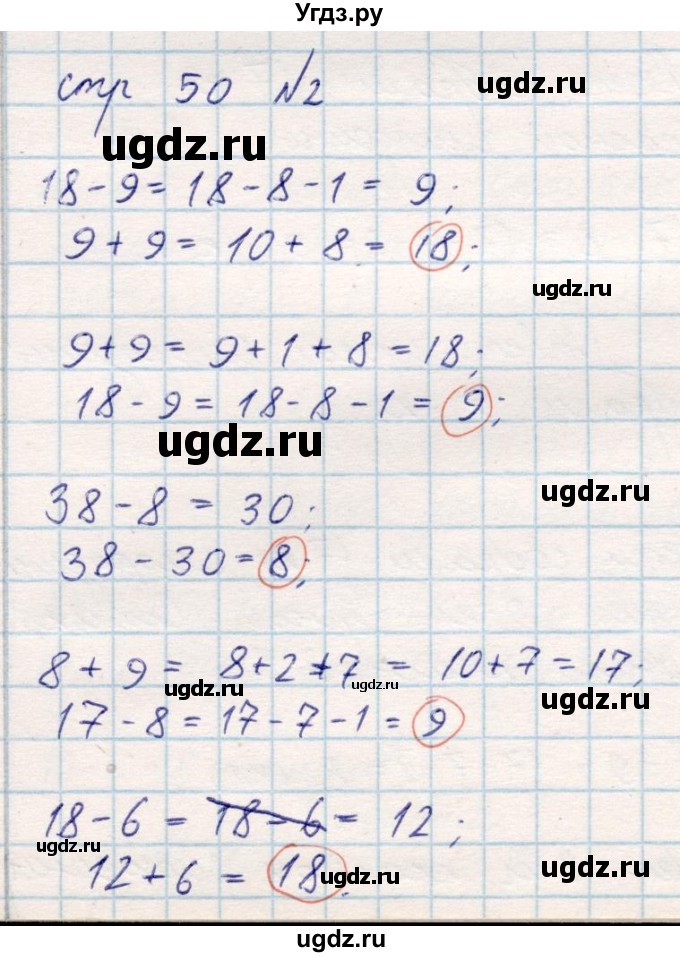 Угдз.ру
стр 50 №2
ugdz.ru
ugdz.ru
18-9=18-8-1= 9;
9+9= 10+8= 18;
ugdz.ru
9+9= 9+1+8=18;
18-9=18-8-1= 9;
ugdz.ru
ugdz.ru
38-8 = 30;
38-30=8;
ugdz.ru
8+9= 8+2+7 = 10+7=17;
ugdz.ru
ugdz.ru
ugdz.ru
17-8=17-7-1= 9
18-6= 18-6= 12;
ugdz.ru
ugdz.ru
12+6 = 18.
ugdz.ru
ugdz.ru